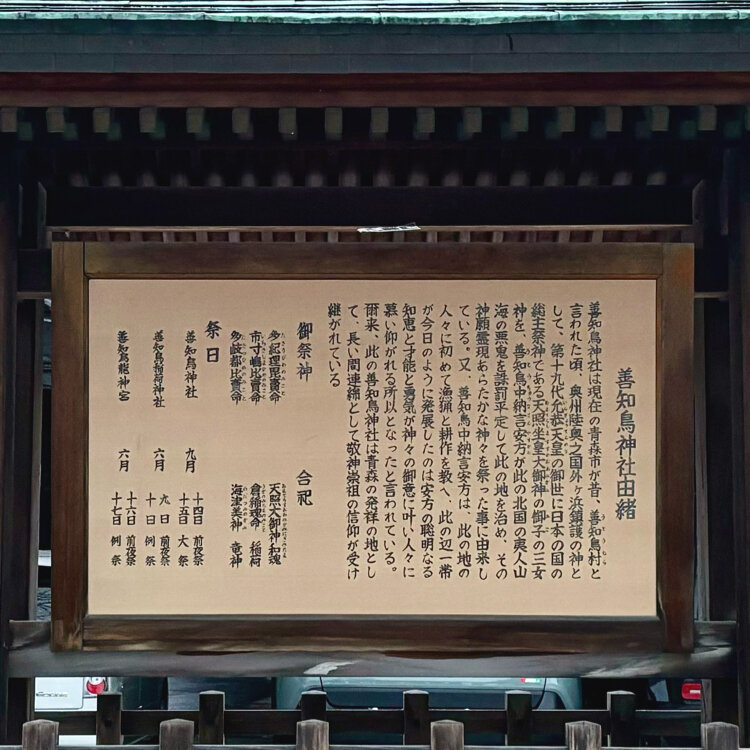 善知鳥神社由緒
善知鳥神社は現在の青森市が昔、善知鳥村と
言われた頃、奥州陸奥之国外ヶ浜鎮護の神と
して、第十九代允恭天皇の御世に日本の国の
総主祭神である天照坐皇大御神の御子の三女
神を、善知鳥中納言安方が此の北国の夷人山
海の悪鬼を誅罰平定して此の地を治め、その
神願霊現あらたかな神々を祭った事に由来し
ている。又、善知鳥中納言安方は、此の地の
人々に初めて漁猟と耕作を教へ、此の辺一帯
が今日のように発展したのは安方の聡明なる
知恵と才能と勇気が神々の御意に叶い人々に
慕い仰がれる所以となったと言われている。
爾来、此の善知鳥神社は青森の発祥の地とし
て、長い間連綿として敬神崇祖の信仰が受け
継がれている
御祭神
多紀理毘賣命
市寸嶋比賣命
多岐都比賣命
合祀
天照大御神和魂
倉稲魂命 稲荷
海津美神 竜神
祭日
善知鳥神社 九月 十四日 前夜祭
十五日 大祭
善知鳥稲荷神社 六月 九日 前夜祭
十日 例祭
善知鳥龍神宮 六月 十六日 前夜祭
十七日 例祭